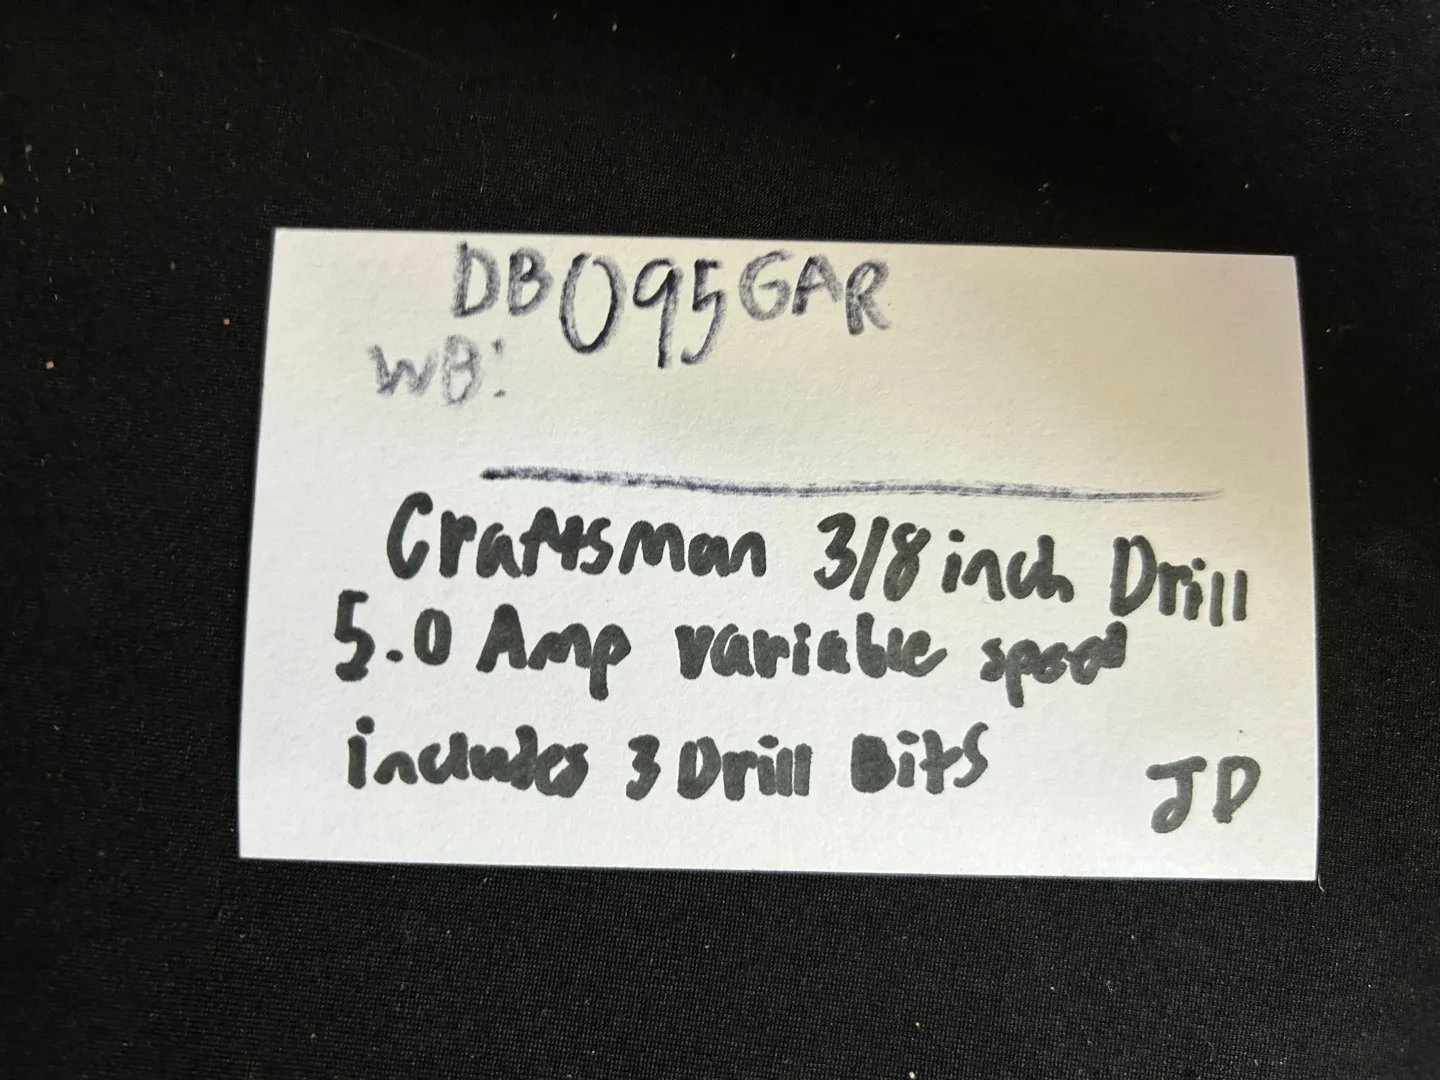 DB095GAR
WB:
Craftsman 3/8 inch Drill
5.0 Amp variable speed
includes 3 Drill Bits
JD